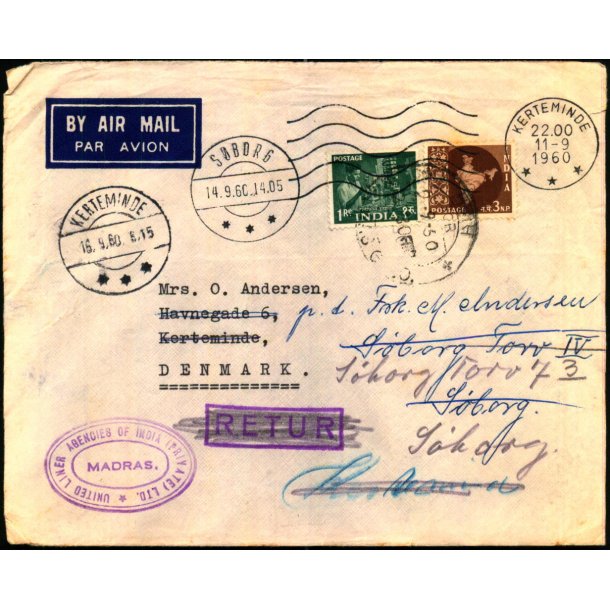 BY AIR MAIL
PAR AVION
SØBORG
14.9.60.14.05
KERTEMINDE
22.00
11-9
1960
KERTEMINDE
16.9.60. 8.15
POSTAGE
1Re INDIA १रु.
INDIA
POSTAGE न.पै.3NP
Mrs. O. Andersen,
Havnegade 6, p. d. Frk. M. Andersen
Kerteminde, Søborg Torv IV
DENMARK. Søborg Torv 7 3
Søborg.
RETUR
Søborg.
UNITED LINER AGENCIES OF INDIA (PRIVATE) LTD.
MADRAS.